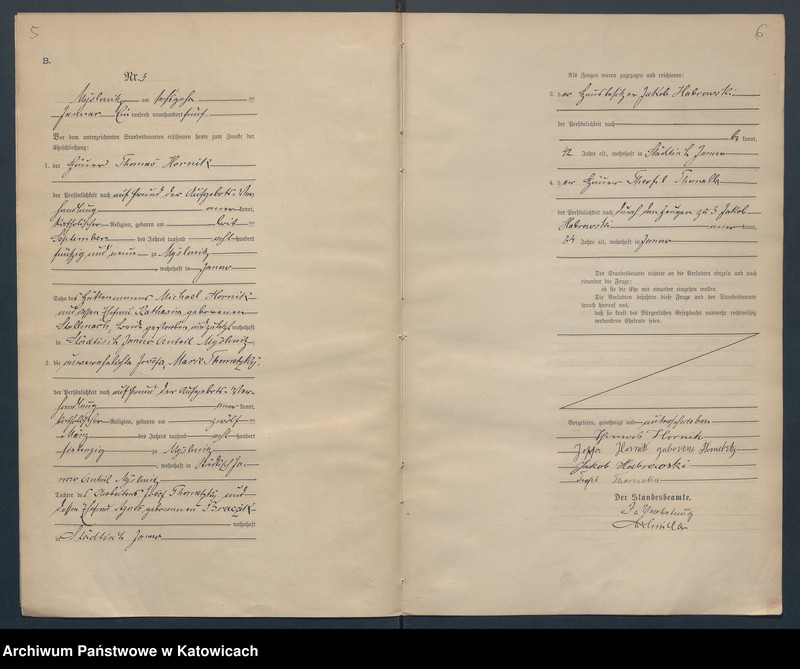 5
B.
Nr. 5
Myslowitz am sechszehn ten
Januar Ein tausend neunhundert fünf
Vor dem unterzeichneten Standesbeamten erschienen heute zum Zwecke der
Eheschließung:
1. der Häuer Thomas Hornik
der Persönlichkeit nach auf Grund der Aufgebots-Ver-
handlung aner kannt,
katholischer Religion, geboren am
September des Jahres tausend acht hundert
fünfzig und neun zu Myslowitz
, wohnhaft in Janow
Sohn des Hüttenmanns Michael Hornik
und dessen Ehefrau Katharina geborenen
beide gestorben und zuletzt wohnhaft
in Städtisch Janow Anteil Myslowitz
2. die unverehelichte Josefa, Marie Thometzky
der Persönlichkeit nach auf Grund der Aufgebots-Ver-
handlung aner kannt,
katholischer Religion, geboren am zwölf ten
März des Jahres tausend acht hundert
siebenzig zu Myslowitz
, wohnhaft in Städtisch Ja-
now Anteil Myslowitz
Tochter des Arbeiters Josef Thometzky und
dessen Ehefrau Agnes geborenen
wohnhaft
in Städtisch Janow
6
Als Zeugen waren zugezogen und erschienen:
3. der Hausbesitzer Jakob Habrowski
der Persönlichkeit nach
be kannt,
42 Jahre alt, wohnhaft in Städtisch Janow
4. der Häuer Theofil Thomalla
der Persönlichkeit nach durch den Zeugen zu 3 Jakob
Habrowski aner kannt,
34 Jahre alt, wohnhaft in Janow
Der Standesbeamte richtete an die Verlobten einzeln und nach
einander die Frage:
ob sie die Ehe mit einander eingehen wollen.
Die Verlobten bejahten diese Frage und der Standesbeamte
sprach hierauf aus,
daß sie kraft des Bürgerlichen Gesetzbuchs nunmehr rechtmäßig
verbundene Eheleute seien.
Vorgelesen, genehmigt und unterschrieben
Thomas Hornik
Josefa Hornik geborene Thometzky
Jakob Habrowski
Teofil Thomalla
Der Standesbeamte.
In Vertretung
Archiwum Państwowe w Katowicach